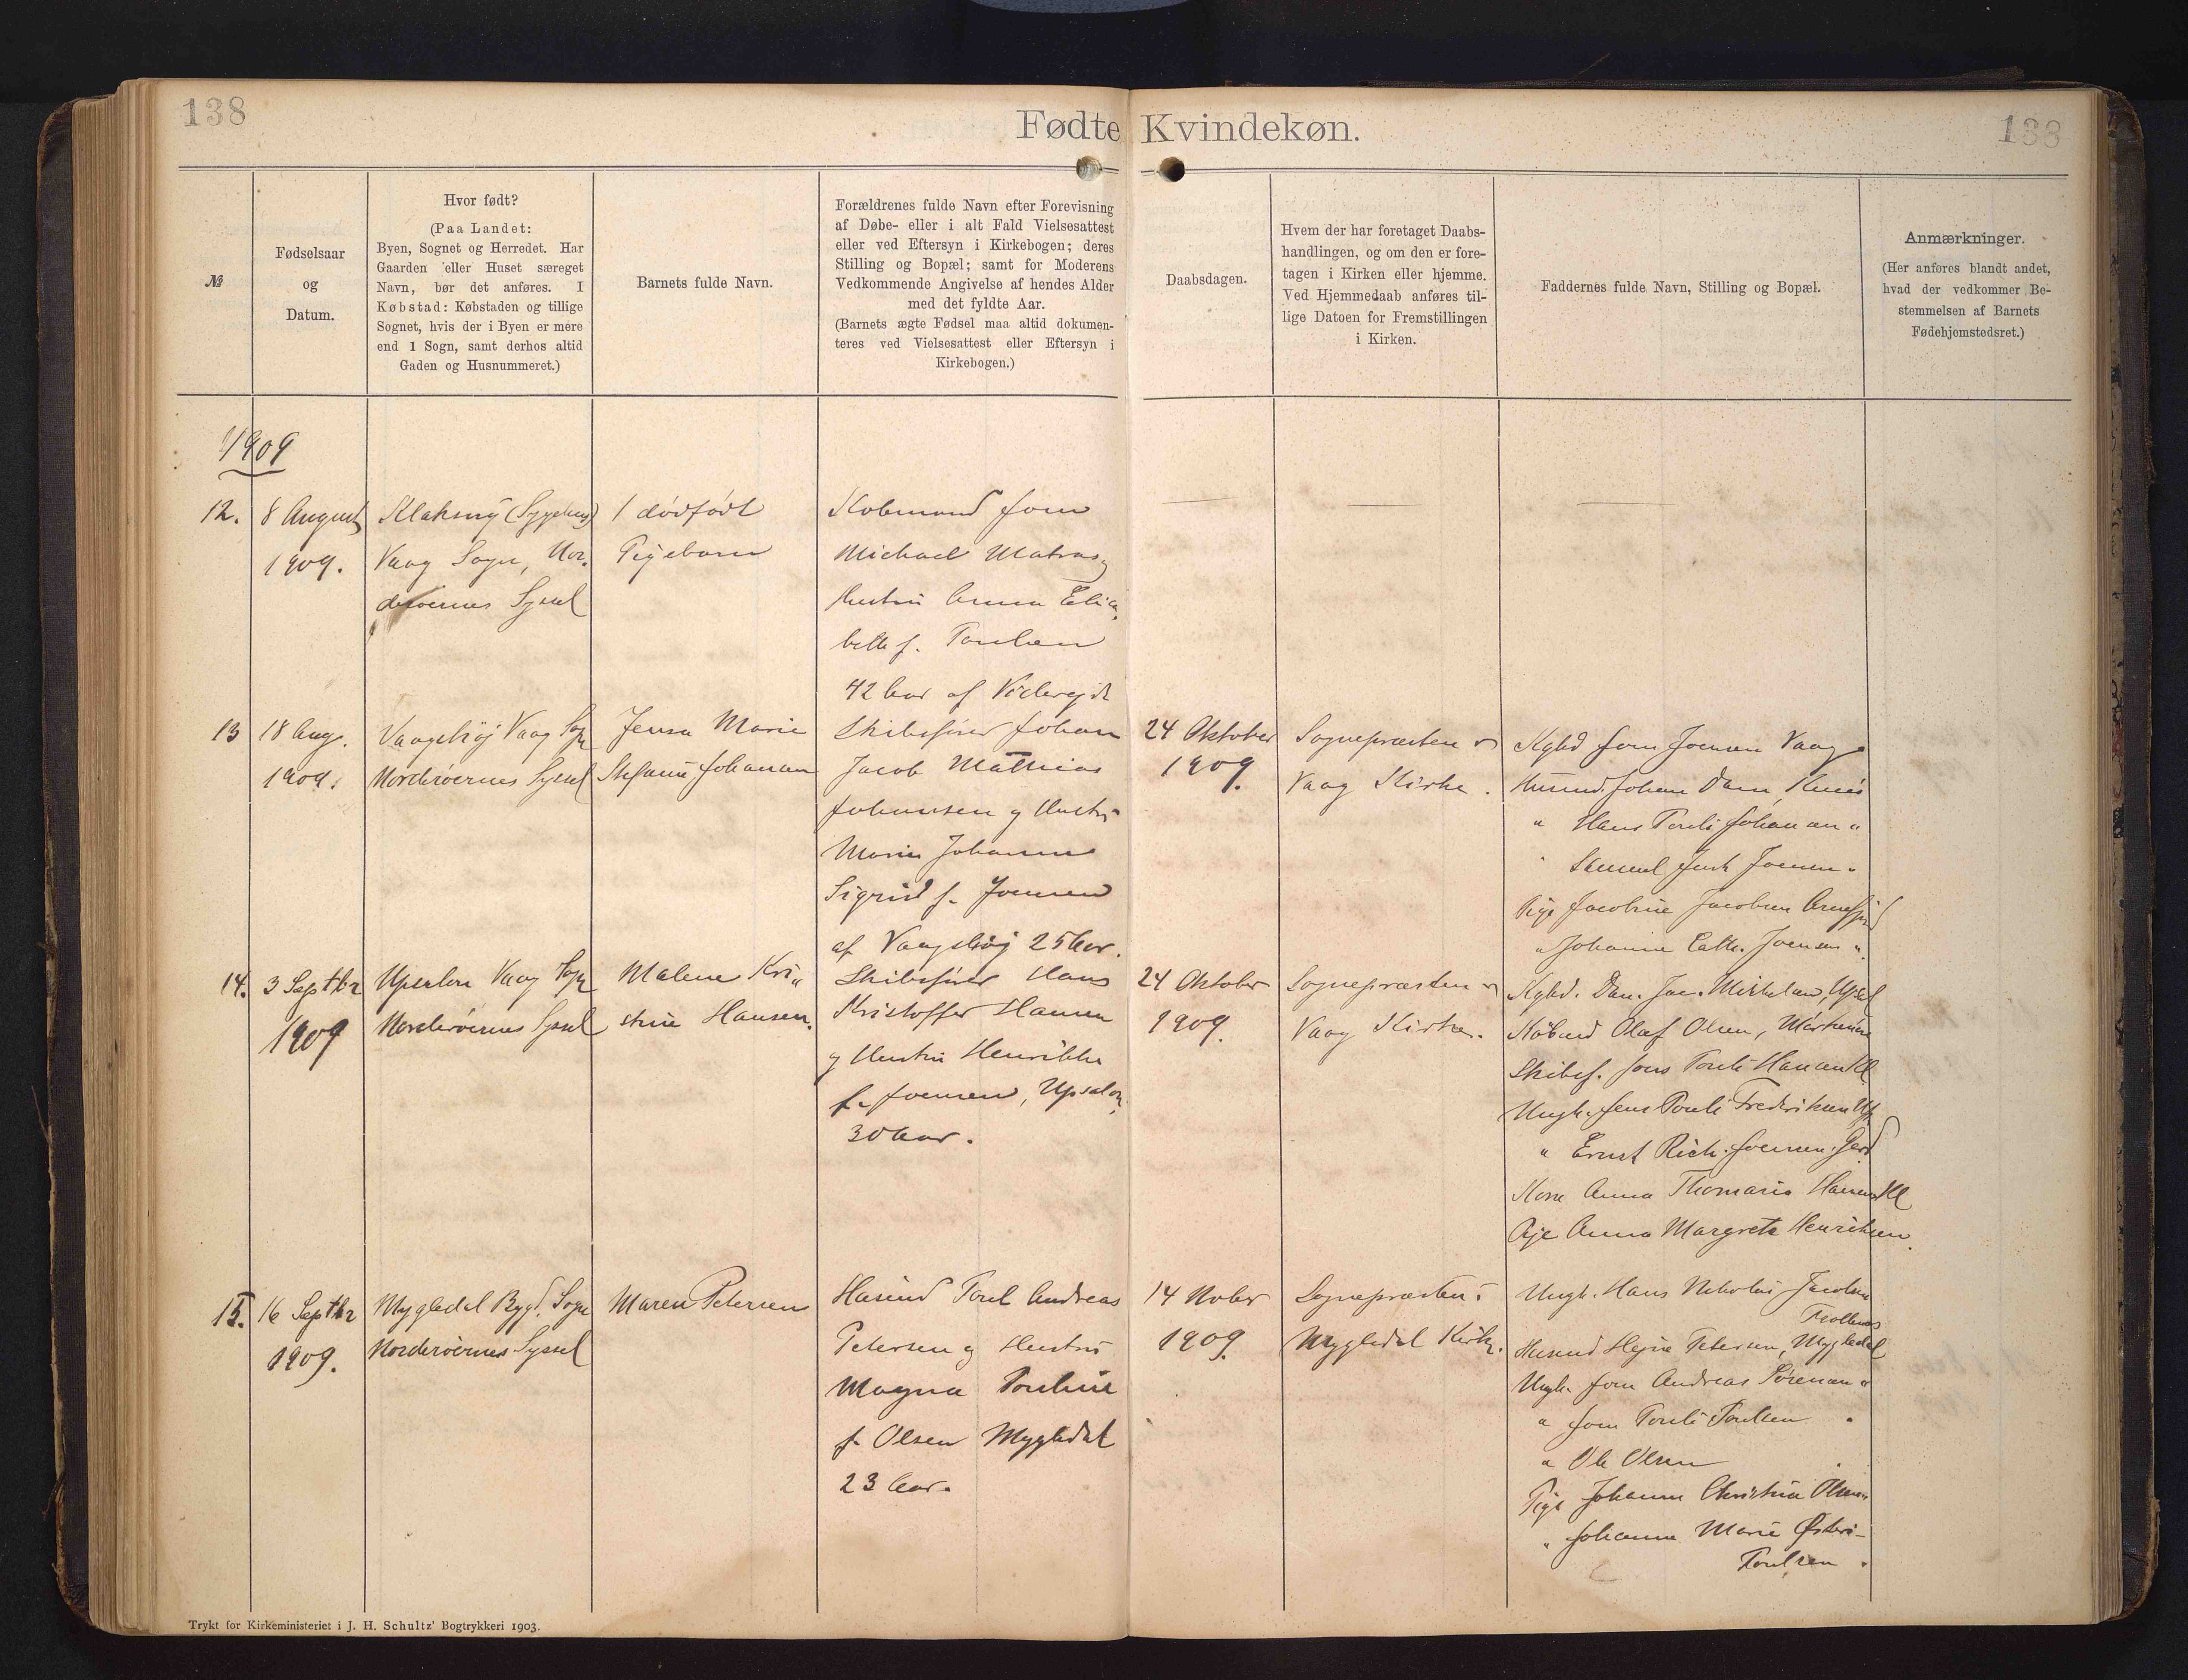 138
Fødte Kvindekøn.
138
№
Fødselsaar
og
Datum.
Hvor født?
(Paa Landet:
Byen, Sognet og Herredet. Har
Gaarden eller Huset særeget
Navn, bør det anføres. I
Købstad: Købstaden og tillige
Sognet, hvis der i Byen er mere
end 1 Sogn, samt derhos altid
Gaden og Husnummeret.)
Barnets fulde Navn.
Forældrenes fulde Navn efter Forevisning
af Døbe- eller i alt Fald Vielsesattest
eller ved Eftersyn i Kirkebogen; deres
Stilling og Bopæl; samt for Moderens
Vedkommende Angivelse af hendes Alder
med det fyldte Aar.
(Barnets ægte Fødsel maa altid dokumen-
teres ved Vielsesattest eller Eftersyn i
Kirkebogen.)
Daabsdagen.
Hvem der har foretaget Daabs-
handlingen, og om den er fore-
tagen i Kirken eller hjemme.
Ved Hjemmedaab anføres til-
lige Datoen for Fremstillingen
i Kirken.
Faddernes fulde Navn, Stilling og Bopæl.
Anmærkninger.
(Her anføres blandt andet,
hvad der vedkommer Be-
stemmelsen af Barnets
Fødehjemstedsret.)
1909
12.
8 August
1909.
Klaksvig (Sygehus)
Vaag Sogn, Nor-
derøernes Syssel
1 dødfødt
Pigebarn
Købmand Joen
Michael Matras og
Hustru Anna Elisa-
beth f. Poulsen
42 Aar af Viderejde
13
18 Aug.
1909.
Vaagshøj Vaag Sogn
Norderøernes Syssel
Jensa Marie
Stefanie Johansen
Skibsfører Johan
Jacob Mathias
Johansen og Hustru
Marie Johanne
Sigrid f. Joensen
af Vaagshøj 25 Aar.
24 Oktober
1909.
Sognepræsten i
Vaag Kirke.
Kgbd Joen Joensen Vaag
Husmd. Johan Dam, Kunø
" Hans Pouli Johansen "
" Samuel Joensen "
Pige Jacobine Jacobsen Arnefjord
" Johanne Cath. Joensen "
14.
3 Septbr
1909
Upsalon Vaag Sogn
Norderøernes Syssel
Malene Kri-
stine Hansen.
Skibsfører Hans
Kristoffer Hansen
og Hustru Henrikke
f. Joensen, Upsalon,
30 Aar.
24 Oktober
1909.
Sognepræsten i
Vaag Kirke.
Kgbd. Dan. Jac. Mikkelsen,
Købmd Olaf Olsen,
Skibsf. Jens Pouli Hansen Kl.
Ungk. Jens Pouli Frederiksen
" Ernst Rich. Joensen
Kone Anna Thomasia Hansen Kl
Pige Anna Margrete Henriksen.
15.
16 Septbr
1909.
Mygledal Bygd, Sogn
Norderøernes Syssel
Maren Petersen
Husmd Poul Andreas
Petersen og Hustru
Magna Pouline
f. Olsen Mygledal
23 Aar.
14 Nobr
1909.
Sognepræsten i
Mygledal Kirke.
Ungk. Hans Nikolai Jacobsen
Trollenæs
Husmd Hejne Petersen, Mygledal
Ungk. Joen Andreas Sørensen "
" Joen Pouli Poulsen "
" Ole Olsen "
Pige Johanne Christina Olsen
" Johanne Marie Østeri-
Poulsen "
Trykt for Kirkeministeriet i J. H. Schultz' Bogtrykkeri 1903.